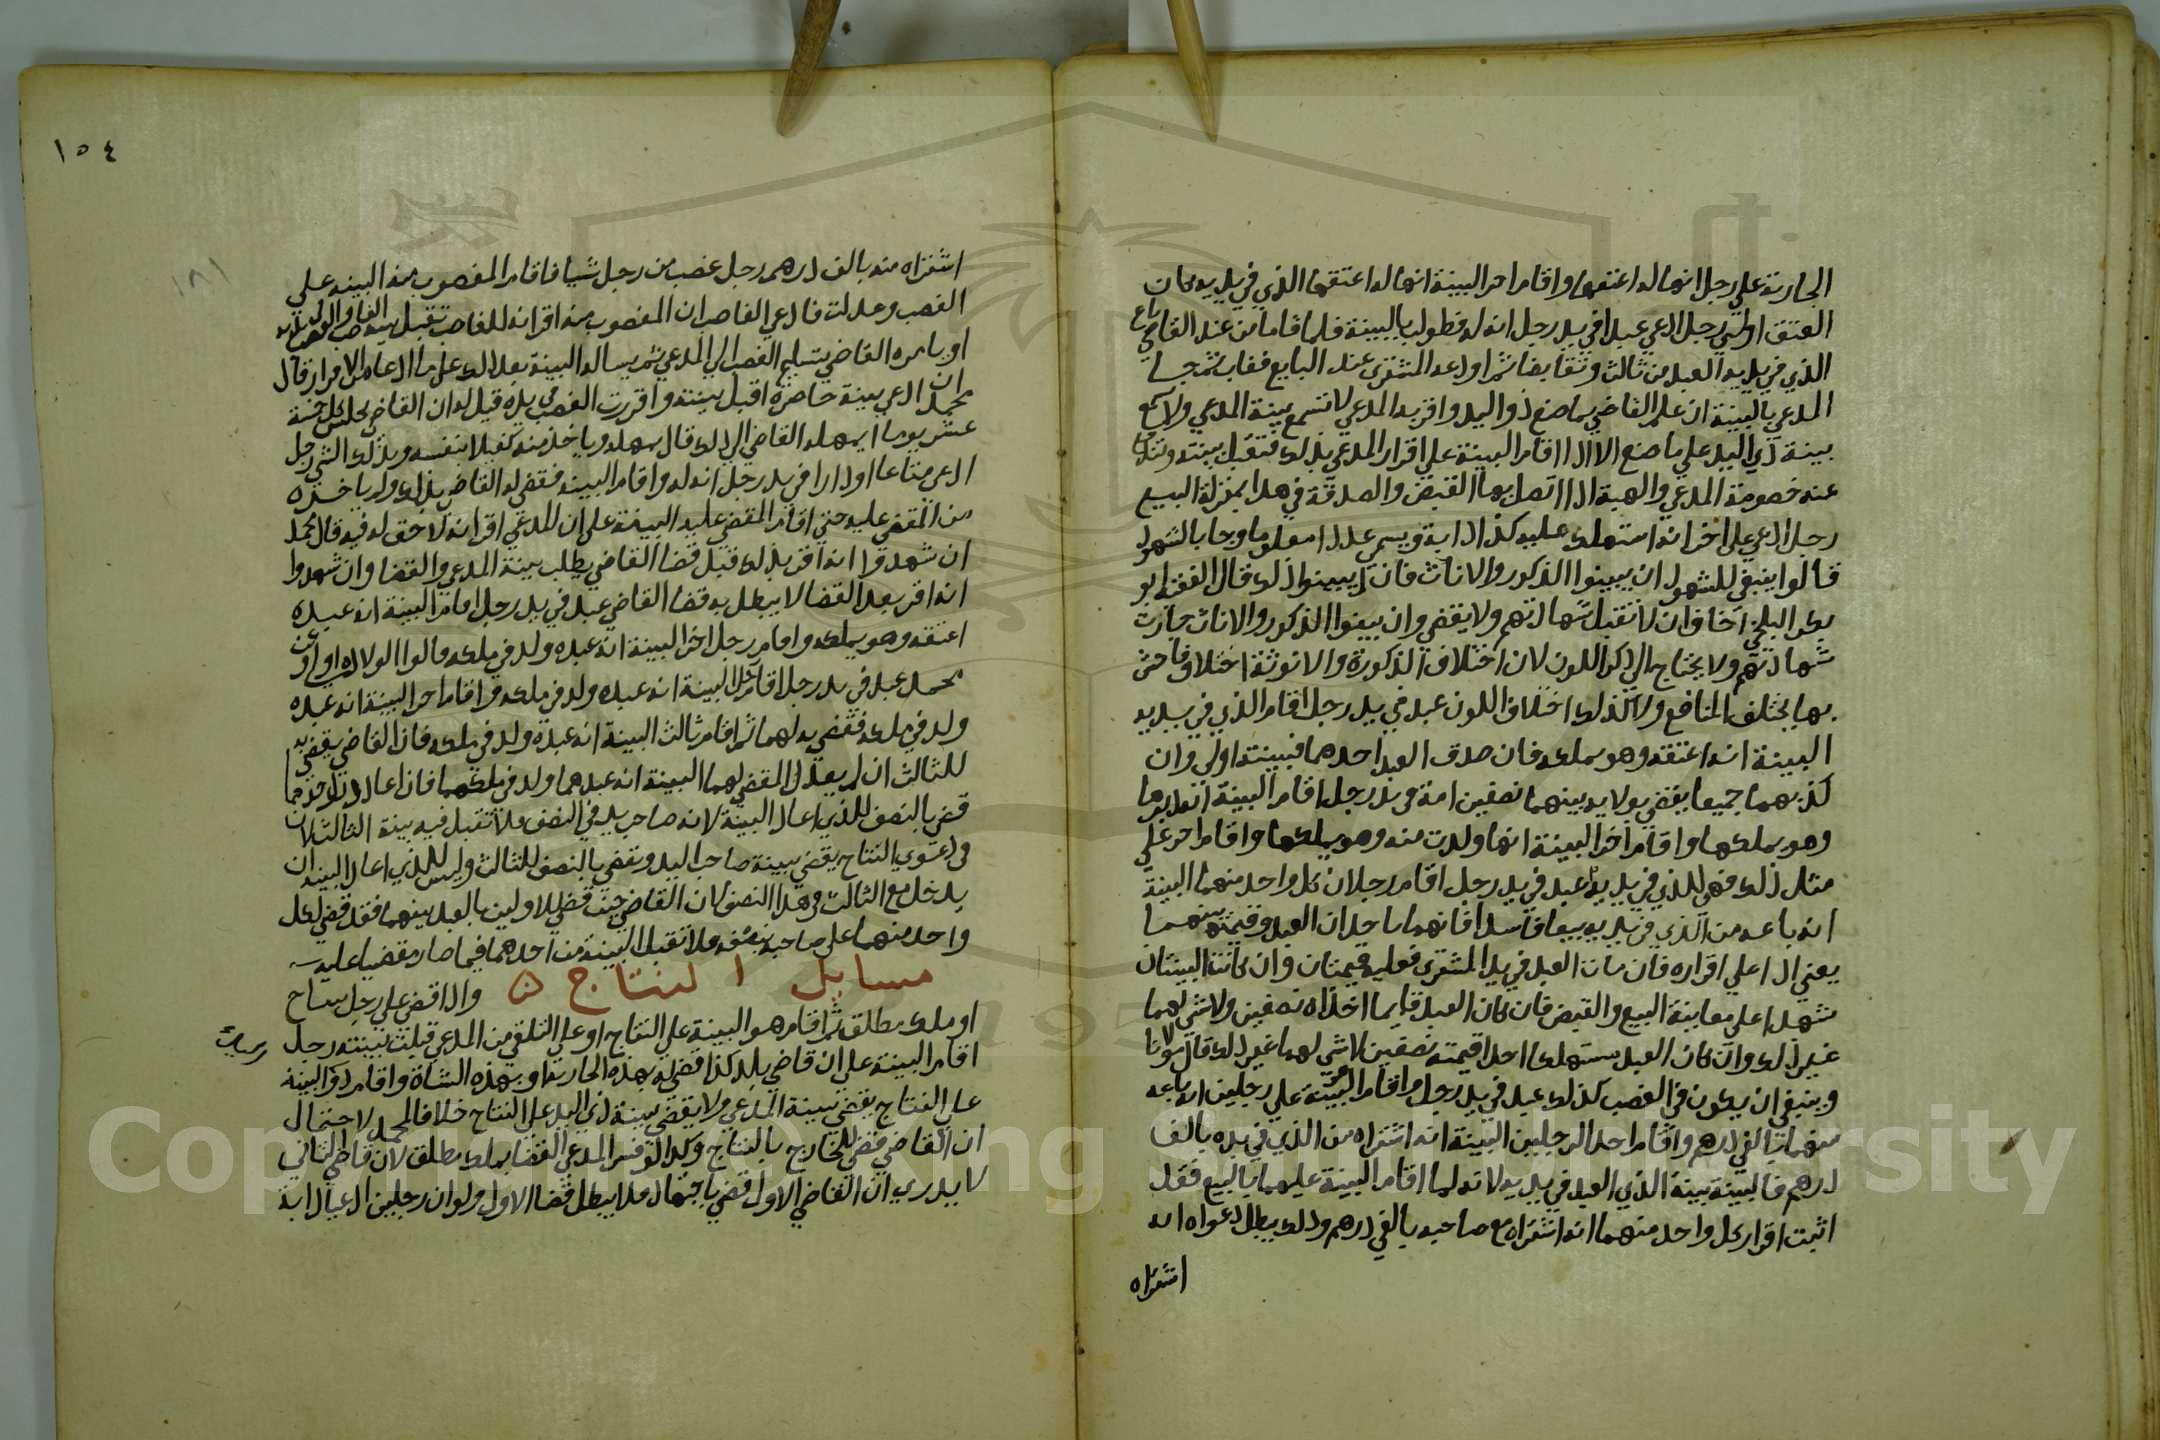 الجارية علي رجل انها له اعتقها واقام اخر البينة انها له اعتقها الذي في يديه كان
العتق اولي رجل ادعي عبدا في يد رجل انه له فطولب بالبينة فلما قاما من عند القاضي باع
الذي في يديه العبد من ثالث وتقابضا ثم اودعه المشتري عند البايع فغاب ثم جا
المدعي بالبينة ان علم القاضي بما صنع ذو اليد واقر به المدعي لا تسمع بينة المدعي ولا تسمع
بينة ذي اليد علي ما صنع الا اذا اقام البينة علي اقرار المدعي بذلك فتقبل بينته وتندفع
عنه خصومة المدعي والهبة اذا اتصل بها القبض والصدقة في هذا بمنزلة البيع
رجل ادعي علي اخر انه استهلك عليه كذا دابة ويسمي عددا معلوما وجا بالشهود
قالوا ينبغي للشهود ان يبينوا الذكور والاناث فان لم يبينوا ذلك قال الفقيه ابو
بكر البلخي اخاف ان لا تقبل شهادتهم ولا يقضي وان بينوا الذكور والاناث جازت
شهادتهم ولا يحتاج الي ذكر اللون لان اختلاف الذكورة والانوثة اختلاف فاحش
بها يختلف المنافع ولا كذلك اختلاف اللون عبد في يد رجل اقام الذي في يديه
البينة انه اعتقه وهو يملكه فان صدق العبد احدهما فبينته اولي وان
كذبهما جميعا يقضي بولايه بينهما نصفين امة في يد رجل اقام البينة انه دبرها
وهو يملكها واقام اخر البينة انها ولدت منه وهو يملكها واقام اخر علي
مثل ذلك فهي للذي في يديه عبد في يد رجل اقام رجلان كل واحد منهما البينة
انه باعه من الذي في يديه بيعا فاسدا فانهما ياخذان العبد وقيمته بينهما
يعني اذا علي اقراره فان مات العبد في يد المشتري فعليه قيمتان وان كانت البينتان
شهدا علي معاينة البيع والقبض فان كان العبد قايما اخذاه نصفين ولا شي لهما
غير ذلك وان كان العبد مستهلكا اخذا قيمته نصفين لا شي لهما غير ذلك قال مولانا
وينبغي ان يكون في الغصب كذلك عبد في يد رجل واقام البينة علي رجلين انه باعه
منهما بالفي درهم واقام احد الرجلين البينة انه اشتراه من الذي في يده بالف
درهم فالبينة بينة الذي العبد في يديه لانه لما اقام البينة عليهما بالبيع فقد
اثبت اقرار كل واحد منهما انه اشتراه مع صاحبه بالفي درهم وذلك يبطل دعواه انه
اشتراه
١٥٤
١٨١
اشتراه منه بالف درهم رجل غصب من رجل شيا فاقام المغصوب منه البينه علي
الغصب وعدلت فادعي الغاصب ان المغصوب منه اقر انه للغاصب تقبل بينة
او يامره القاضي بتسليم الغصب الي المدعي ثم يساله البينة بعد ذلك علي ما ادعاه من الاقرار قال
محمد ان ادعي بينة حاضرة اقبل بينته واقررت الغصب في يده قيل له ان القاضي يجلس كل خمسة
عشر يوما ايمهله القاضي الي ذلك قال يمهله وياخذ منه كفيلا بنفسه وبذلك الشي رجل
ادعي متاعا او دارا في يد رجل انه له واقام البينه فقضي له القاضي بذلك ولم ياخذه
من المقضي عليه حتي اقام المقضي عليه البينة علي ان المدعي اقر انه لا حق له فيه قال محمد
ان شهدوا انه اقر بذلك قبل قضا القاضي يبطل بينة المدعي والقضا وان شهدوا
انه اقر بعد القضا لا يبطل به قضا القاضي عبد في يد رجل اقام البينة انه عبده
اعتقه وهو يملكه واقام رجل اخر البينة انه عبده ولد في ملكه قالوا الولادة اولي وعن
محمد عبد في يد رجل اقام رجل البينة انه عبده ولد في ملكه واقام اخر البينة انه عبده
ولد في ملكه فقضي به لهما ثم اقام ثالث البينة انه عبده ولد في ملكه فان القاضي يقضي به
للثالث ان لم يعد المقضي لهما البينة انه عبدهما ولد في ملكهما فان اعاد احدهما
قضي بالنصف للذي اعاد البينة لانه صاحب يد في النصف فلا تقبل فيه بينة الثالث لان
في دعوي النتاج يقضي ببينة صاحب اليد ويقضي بالنصف للثالث وليس للذي اعاد البينه ان
يدخل مع الثالث في هذا النصف لان القاضي حيث قضي للاولين بالعبد بينهما فقد قضي لكل
واحد منهما علي صاحبه بنصفه فلا تقبل البينة من احدهما فيما صار مقضيا عليه
مسايل النتاج واذا قضي علي رجل بنتاج
او ملك مطلق ثم اقام هو البينة علي النتاج او علي التلقي من المدعي قبلت بينته رجل
اقام البينة علي ان قاضي بلد كذا قضي له بهذه الجارية او بهذه الشاة واقام ذو اليد البينة
علي النتاج يقضي ببينة المدعي ولا يقضي ببينة ذي اليد علي النتاج خلافا لمحمد لاحتمال
ان القاضي قضي للخارج بالنتاج وكذا لو فسر المدعي القضا بملك مطلق لان قاضي الثاني
لا يدري ان القاضي الاول قضي باجتهاد فلا يبطل قضا الاول ولو ان رجلين ادعيا دابة